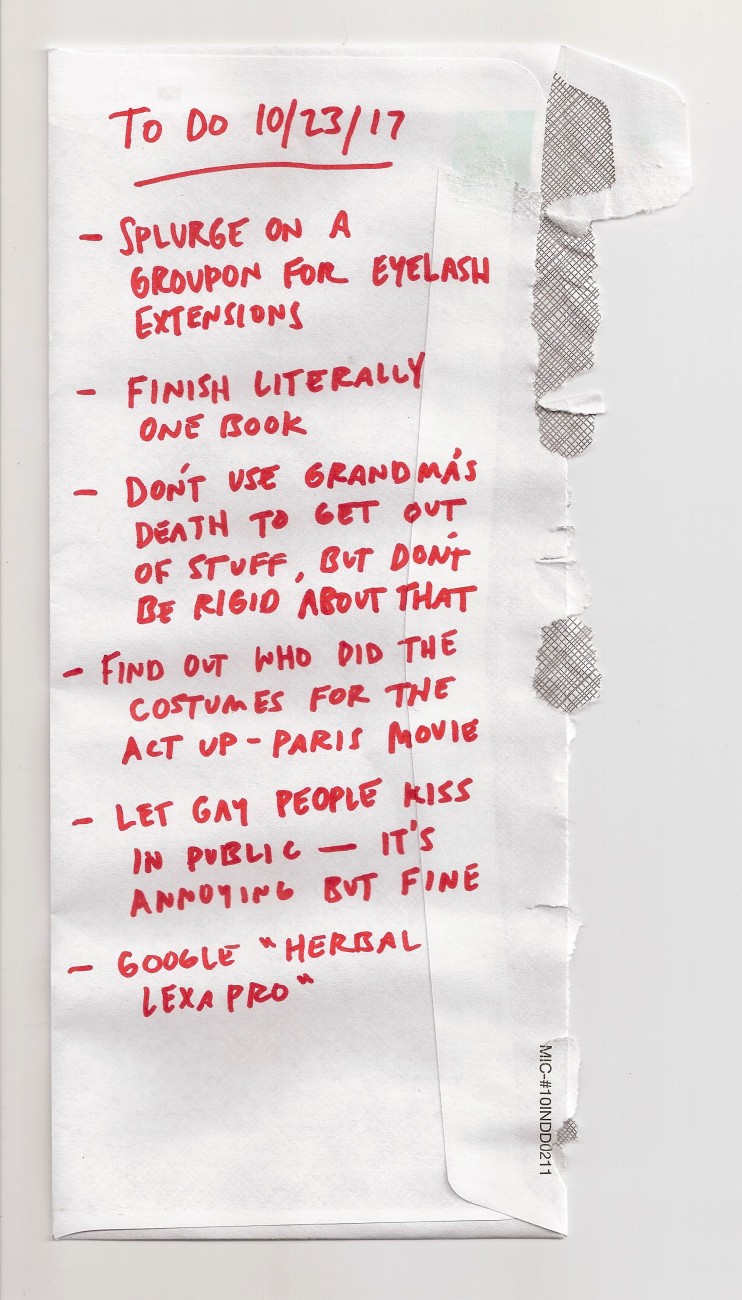 TO DO 10/23/17
- SPLURGE ON A
GROUPON FOR EYELASH
EXTENSIONS
- FINISH LITERALLY
ONE BOOK
- DON'T USE GRANDMA'S
DEATH TO GET OUT
OF STUFF, BUT DON'T
BE RIGID ABOUT THAT
- FIND OUT WHO DID THE
COSTUMES FOR THE
ACT UP - PARIS MOVIE
- LET GAY PEOPLE KISS
IN PUBLIC — IT'S
ANNOYING BUT FINE
- GOOGLE "HERBAL
LEXAPRO"
MIC-#10INDD0211